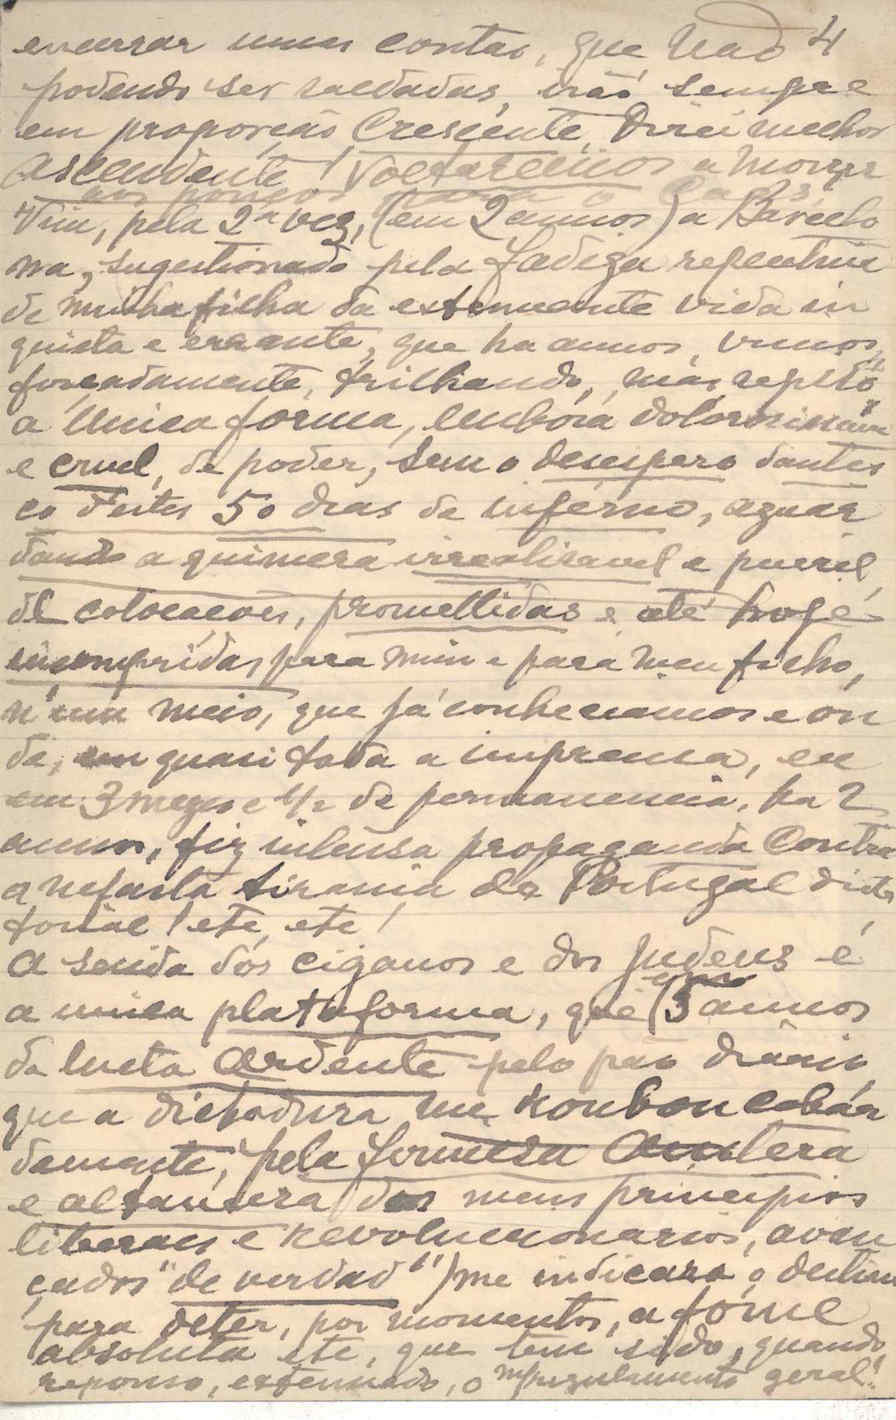 4
encurrar umas contas, que não
podendo ser saldadas, irão sempre
em proporção crescente, direi melhor
ascendente! Voltaremos a morrer
aos poucos
Vim, pela 2ª vez, (em 2 annos) a Barcelo
na, sugestionado pela fadiga repentina
de minha filha da extenuante vida in
quieta e errante, que ha annos, vimos,
forçadamente, trilhando, mas, repito
a unica forma, embora dolorosissima
e cruel, de poder, sem o desespero dantes
co d'estes 50 dias de inferno, aguar
dando a quimera irrealisavel e pueril,
de colocações, promettidas e até hoje
incumpridas para mim e para meu filho,
n'um meio, que já conheciamos e on
de, em quasi toda a imprensa, eu
em 3 mezes e 1/2 de permanencia, ha 2
annos, fiz intensa propaganda contra
a nefasta tirania de Portugal dicta
torial! etc, etc!
A senda dos ciganos e dos judeus é
a unica plataforma, que (3 annos
de lucta ardente pelo pão diario,
que a dictadura me roubou cobar
demente, pela firmeza austera
e altaneira dos meus principios
liberaes e revolucionarios, avan
çados "de verdad") me indicara o destino
para deter, por momentos, a fome
absoluta etc, que tem sido, quando,
reponso, extenuado, o geral!